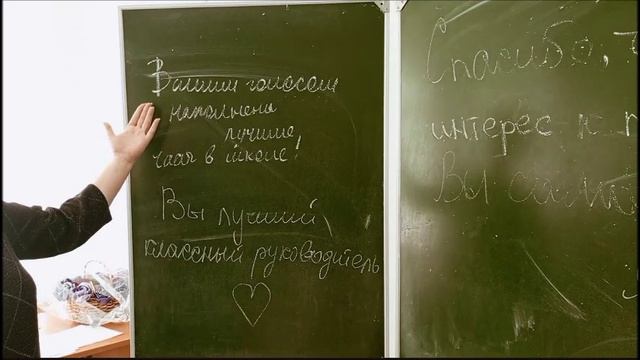 Вашим голосом
наполнены
лучшие
часы в школе!
Вы лучший
классный руководитель
Спасибо,
интерес к
Вы самы